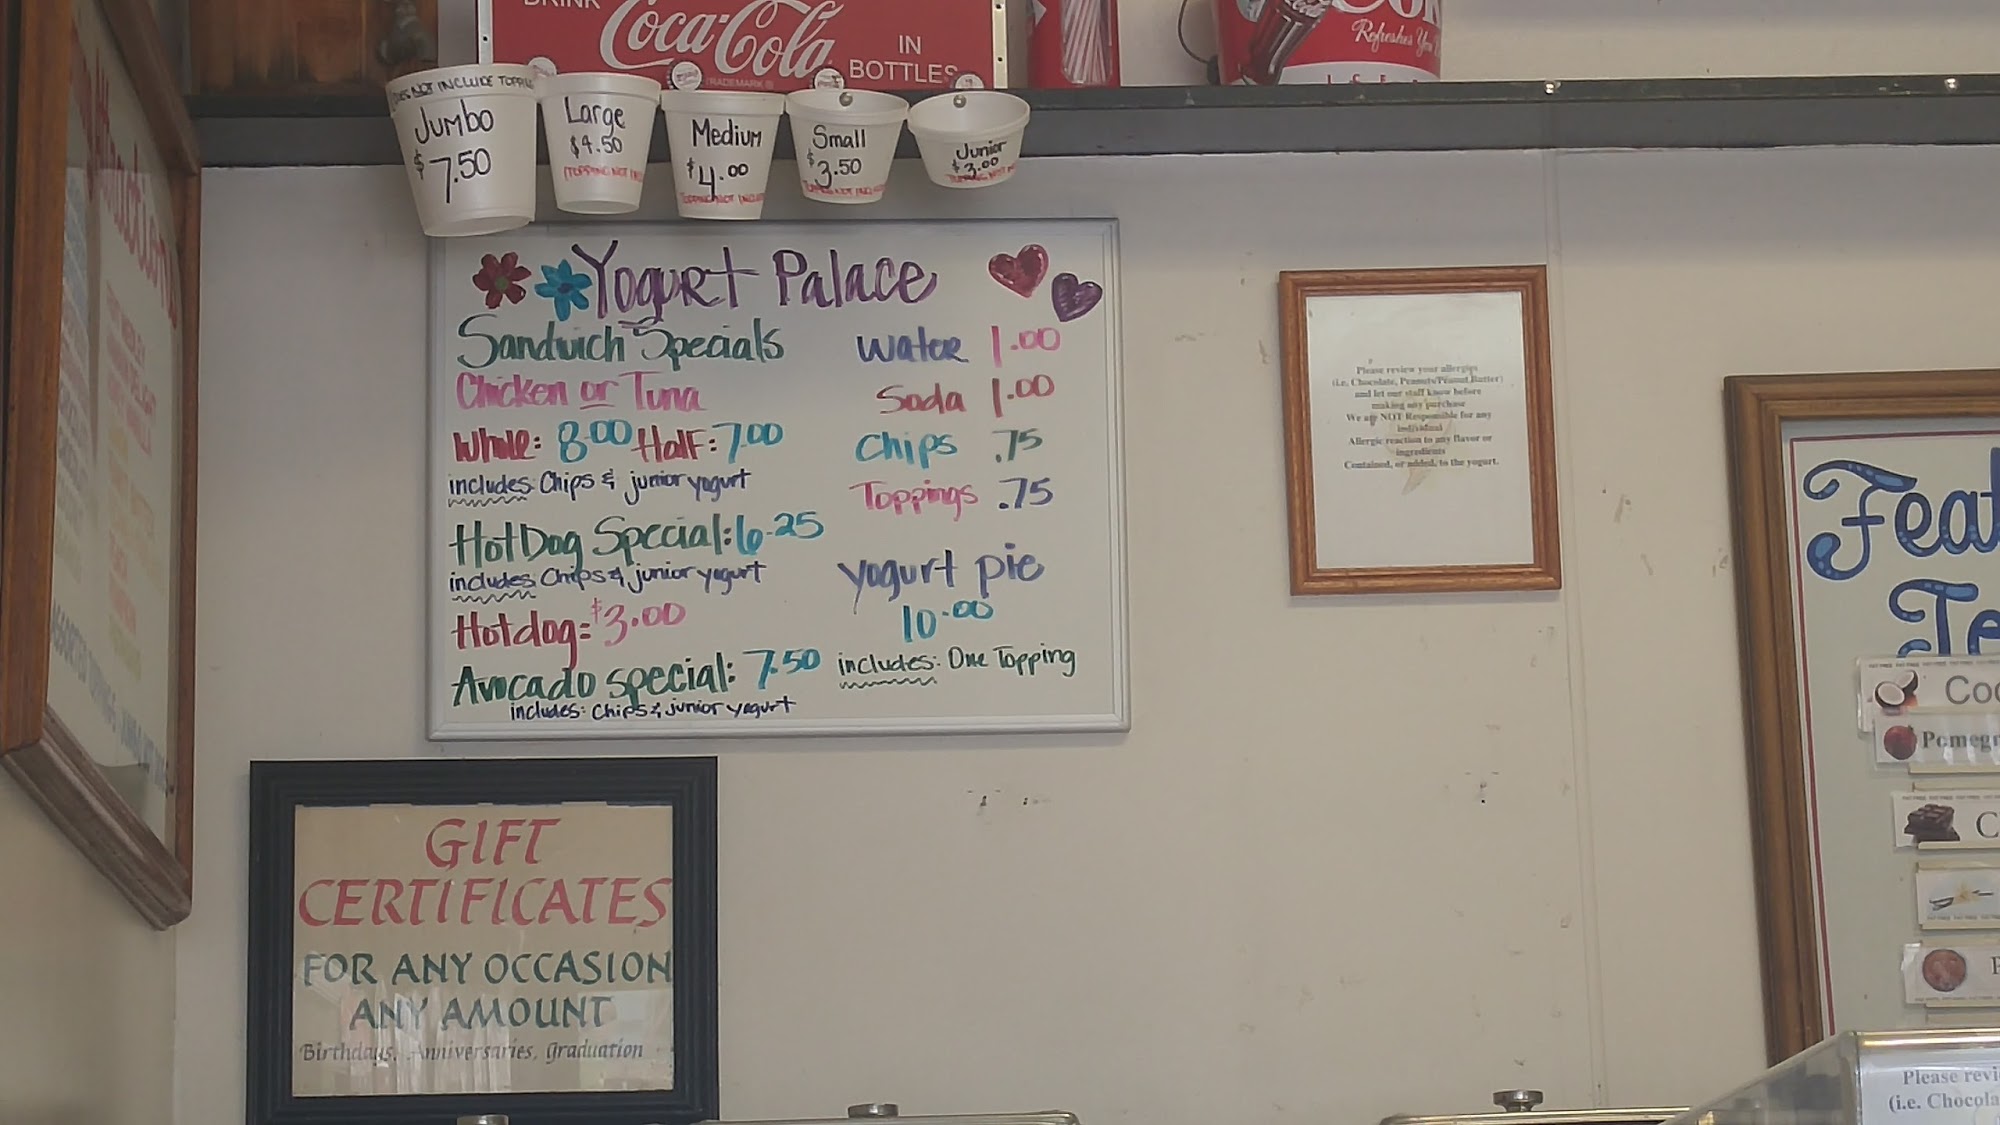 DRINK
Coca-Cola
TRADEMARK ®
IN
BOTTLES
Refreshes You
DOES NOT INCLUDE TOPPING
Jumbo
$7.50
Large
$4.50
(TOPPING NOT INCL
Medium
$4.00
TOPPING NOT INCLU
Small
$3.50
TOPPING NOT INCLU
Junior
$3.00
TOPPING NOT IN
Yogurt Palace
Sandwich Specials
Chicken or Tuna
Whole: 8.00 Half: 7.00
includes: Chips & junior yogurt
HotDog Special: 6.25
includes: Chips & junior yogurt
Hotdog= $3.00
Avocado special: 7.50
includes: chips & junior yogurt
Water 1.00
Soda 1.00
Chips .75
Toppings .75
yogurt pie
10.00
includes: One Topping
Please review your allergies
(i.e. Chocolate, Peanuts/Peanut Butter)
and let our staff know before
making any purchase
We are NOT Responsible for any
individual
Allergic reaction to any flavor or
ingredients
Contained, or added, to the yogurt.
GIFT
CERTIFICATES
FOR ANY OCCASION
ANY AMOUNT
Birthdays, Anniversaries, Graduation
Feat
Te
Coc
Pomegr
C
P
Please revi
(i.e. Chocola